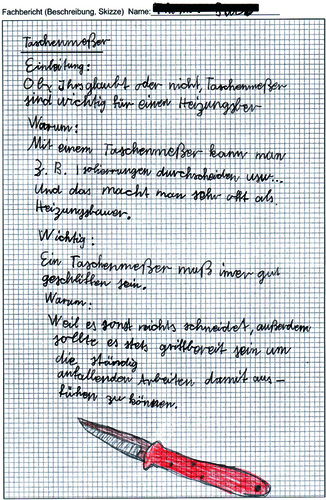 Fachbericht (Beschreibung, Skizze) Name:
Taschenmeßer
Einleitung:
Ob Ihrs glaubt oder nicht, Taschenmeßer
sind wichtig für einen Heizungsber
Warum:
Mit einem Taschenmeßer kann man
Z. B. Isolierrungen durchscheiden usw...
Und das macht man sehr oft als
Heizungsbauer.
Wichtig:
Ein Taschenmeßer muß imer gut
geschliffen sein.
Warum:
Weil es sonst nichts schneidet, außerdem
sollte es stets griffbereit sein um
die ständig
anfallenden Arbeiten damit aus-
führen zu können.